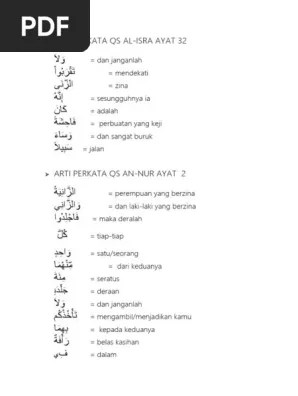 PDF
KATA QS AL-ISRA AYAT 32
وَلَا = dan janganlah
تَقْرَبُوا۟ = mendekati
الزِّنٰى = zina
إِنَّهُ = sesungguhnya ia
كَانَ = adalah
فَاحِشَةً = perbuatan yang keji
وَسَاءَ = dan sangat buruk
سَبِيلًا = jalan
➤ ARTI PERKATA QS AN-NUR AYAT 2
الزَّانِيَةُ = perempuan yang berzina
وَالزَّانِي = dan laki-laki yang berzina
فَاجْلِدُوا = maka deralah
كُلَّ = tiap-tiap
وَاحِدٍ = satu/seorang
مِّنْهُمَا = dari keduanya
مِئَةَ = seratus
جَلْدَةٍ = deraan
وَلَا = dan janganlah
تَأْخُذْكُم = mengambil/menjadikan kamu
بِهِمَا = kepada keduanya
رَأْفَةٌ = belas kasihan
فِي = dalam